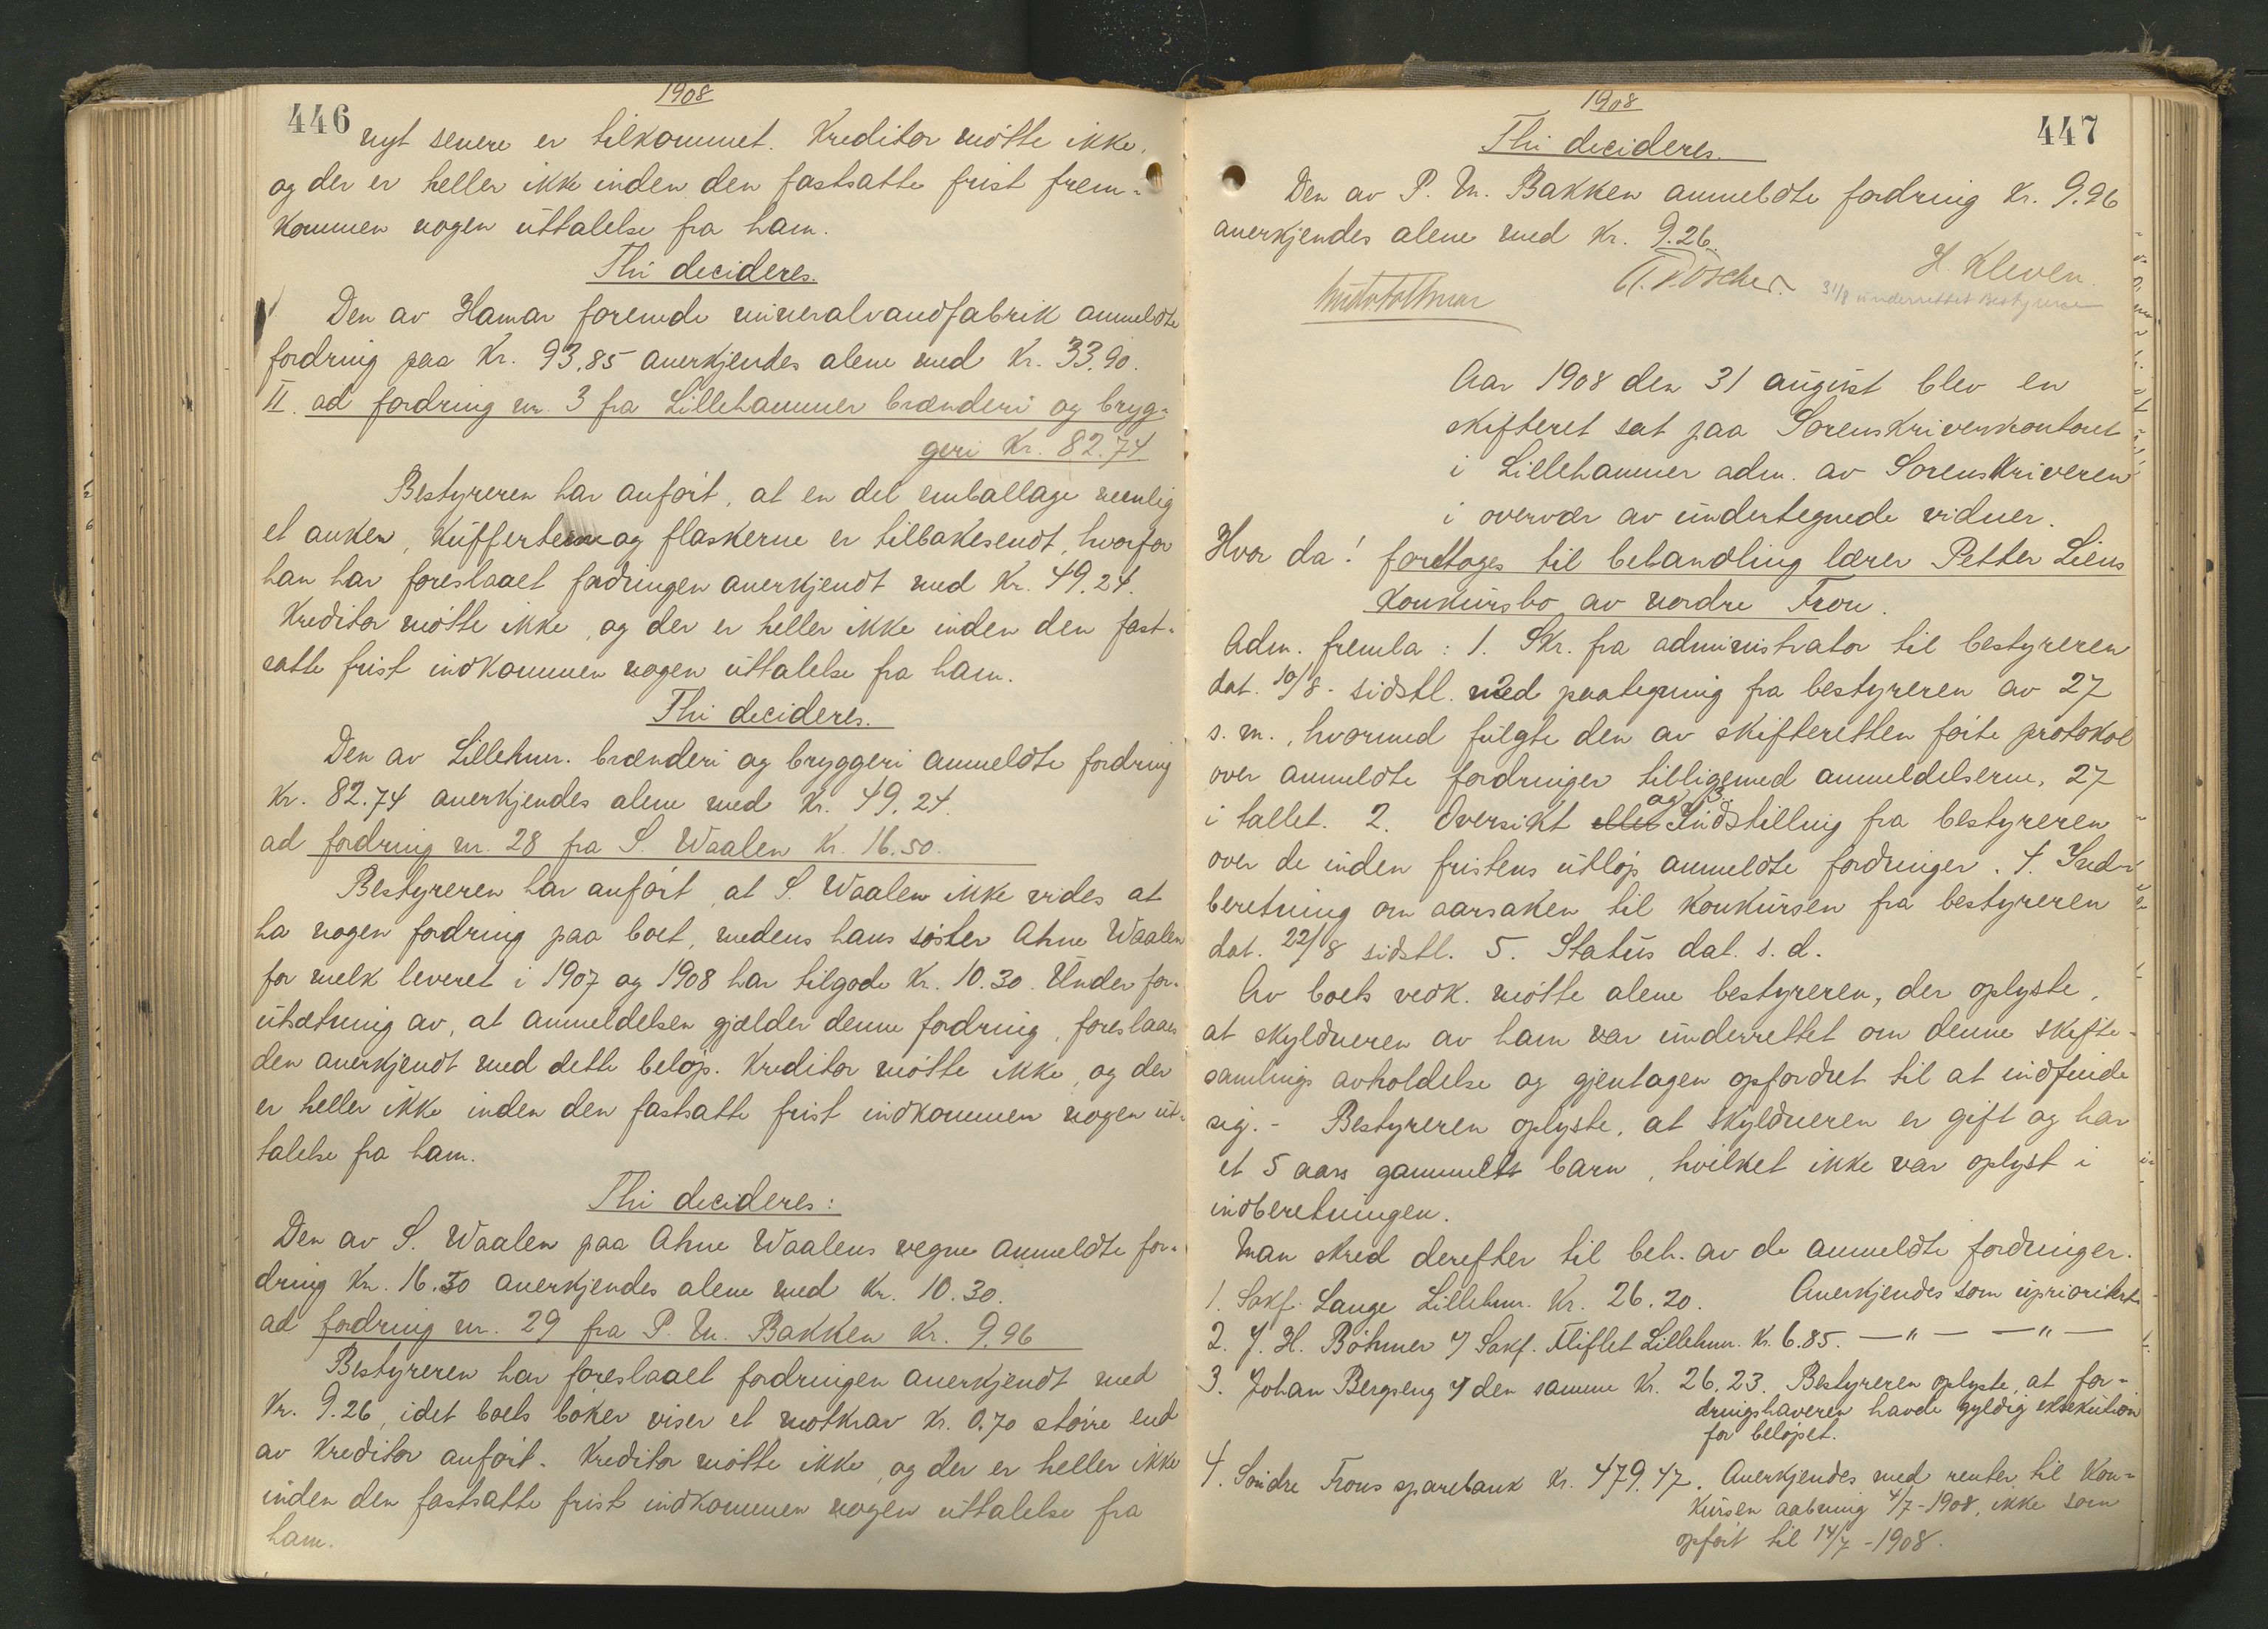 1908
446
nyt senere er tilkommet. Kreditor møtte ikke,
og der er heller ikke inden den fastsatte frist frem-
kommen nogen uttalelse fra ham.
Thi decideres.
Den av Hamar forenede mineralvandfabrik anmeldte
fordring paa Kr. 93,85 anerkjendes alene med Kr. 33.90.
II. ad fordring nr. 3 fra Lillehammer brænderi og bryg-
geri Kr. 82.74
Bestyreren har anført, at en del emballage nemlig
et anker, kufferterne og flaskerne er tilbakesendt, hvorfor
han har foreslaaet fordringen anerkjendt med Kr. 49.24.
Kreditor møtte ikke, og der er heller ikke inden den fast-
satte frist indkommen nogen uttalelse fra ham.
Thi decideres.
Den av Lillehmr. brænderi og bryggeri anmeldte fordring
Kr. 82.74 anerkjendes alene med Kr. 49.24.
ad fordring nr. 28 fra S. Waalen Kr. 16.50.
Bestyreren har anført, at S. Waalen ikke vides at
ha nogen fordring paa boet, medens hans søster Ahne Waalen
for melk leveret i 1907 og 1908 har tilgode Kr. 10.30. Under for-
utsætning av, at anmeldelsen gjælder denne fordring, foreslaaes
den anerkjendt med dette beløp. Kreditor møtte ikke, og der
er heller ikke inden den fastsatte frist indkommen nogen ut-
talelse fra ham.
Thi decideres:
Den av S. Waalen paa Ahne Waalens vegne anmeldte for-
dring Kr. 16.50 anerkjendes alene med Kr. 10.30.
ad fordring nr. 29 fra P. M. Bakken Kr. 9.96
Bestyreren har foreslaaet fordringen anerkjendt med
Kr. 9.26, idet boets bøker viser et motkrav Kr. 0.70 større end
av Kreditor anført. Kreditor møtte ikke, og der er heller ikke
inden den fastsatte frist indkommen nogen uttalelse fra
ham.
1908
447
Thi decideres.
Den av P. M. Bakken anmeldte fordring Kr. 9.96
anerkjendes alene med Kr. 9.26.
H. Kleven.
31/8 underrettet Bestyreren
Aar 1908 den 31 august blev en
skifteret sat paa Sorenskriverkontoret
i Lillehammer adm. av Sorenskriveren
i overvær av undertegnede vidner.
Hvor da! foretoges til behandling lærer Petter Liens
Konkursbo av nordre Fron.
Adm. fremla: 1. Skr. fra administrator til bestyreren
dat. 10/8 - sidstl. med paategning fra bestyreren av 27
s. m., hvormed fulgte den av skifteretten førte protokol
over anmeldte fordringer tilligemed anmeldelserne, 27
i tallet. 2. Oversikt eller og 3. Indstilling fra bestyreren
over de inden fristens utløp anmeldte fordringer. 4. Ind-
beretning om aarsaken til Konkursen fra bestyreren
dat. 22/8 sidstl. 5. Status dat. s. d.
Av boets vedk. møtte alene bestyreren, der oplyste,
at skyldneren av ham var underrettet om denne skifte-
samlings avholdelse og gjentagen opfordret til at indfinde
sig. - Bestyreren oplyste, at skyldneren er gift og har
et 5 aars gammelt barn, hvilket ikke var oplyst i
indberetningen.
Man skred derefter til beh. av de anmeldte fordringer.
1. Sakf. Lange Lillehmr. Kr. 26.20. Anerkjendes som uprioritert
2. J. H. Böhmer v/ Sakf. Fliflet Lillehmr. Kr. 6.85. — " — — " —
3. Johan Bergseng v/ den samme Kr. 26.23. Bestyreren oplyste, at for-
dringshaveren havde gyldig eksekution
for beløpet.
4. Søndre Frons sparebank Kr. 479.47. Anerkjendes med renter til Kon-
kursen aabning 4/7-1908, ikke som
opført til 14/7-1908.